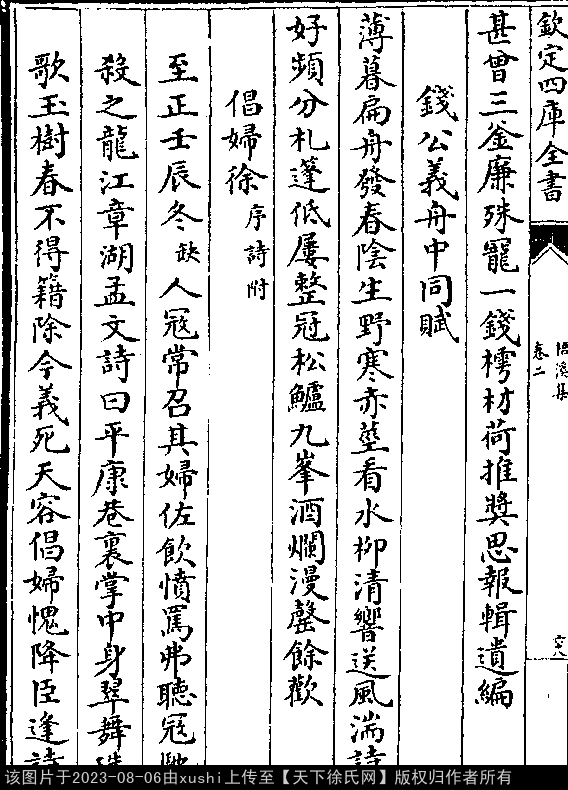 欽定四庫全書
梧溪集
卷二
六八
甚曾三釜廉殊寵一錢樗材荷推奬思報輯遺編
錢公義舟中同賦
薄暮扁舟發春陰生野寒赤莖看水栁清響送風湍詩
好頻分札篷低屢整冠松鱸九峯酒爛漫罄餘歡
倡婦徐序詩附
至正壬辰冬缺人冦常召其婦佐飲憤罵弗聽冦
殺之龍江章湖孟文詩曰平康巷裏掌中身翠舞珠
歌玉樹春不得籍除今義死天容倡婦愧降臣逢詩
该图片于2023-08-06由xushi上传至【天下徐氏网】版权归作者所有